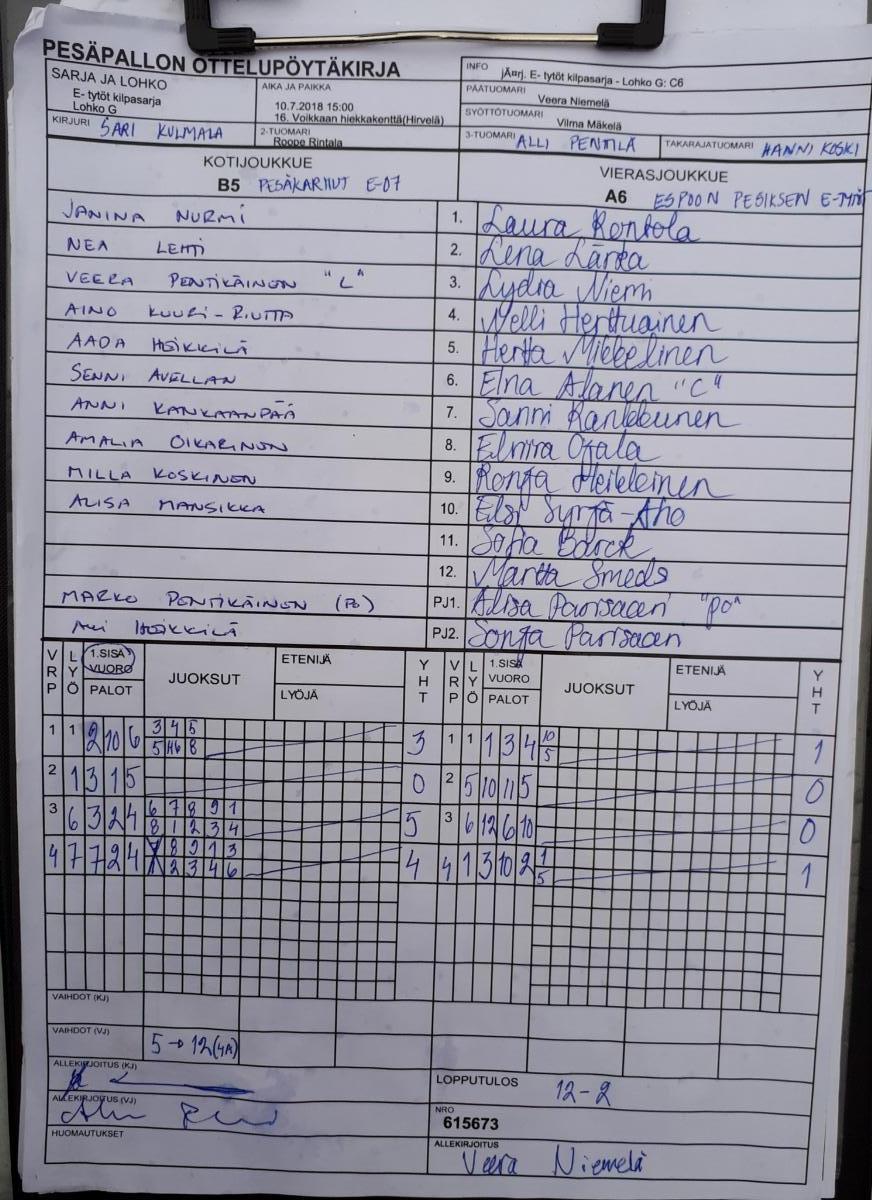 PESÄPALLON OTTELUPÖYTÄKIRJA
SARJA JA LOHKO
E- tytöt kilpasarja
Lohko G
AIKA JA PAIKKA
10.7.2018 15:00
16. Voikkaan hiekkakenttä(Hirvelä)
INFO
jÄ¤rj. E- tytöt kilpasarja - Lohko G: C6
PÄÄTUOMARI
Veera Niemelä
SYÖTTÖTUOMARI
Vilma Mäkelä
KIRJURI SARI KULMALA
2-TUOMARI
Roope Rintala
3-TUOMARI ALLI PENTILÄ
TAKARAJATUOMARI HANNI KOSKI
KOTIJOUKKUE
B5 PESÄKARHUT E-07
VIERASJOUKKUE
A6 ESPOON PESIKSEN E-TYTÖT
JANINA NURMI 1. Laura Rontola
NEA LEHTI 2. Lena
VEERA PENTIKÄINEN "L" 3. Lydia Niemi
AINO KUURI-RIUTTA 4. Nelli Herttuainen
AADA HEIKKILÄ 5. Hertta Mikkelinen
SENNI AVELLAN 6. Elna Alanen "C"
ANNI KANKAANPÄÄ 7. Sanni Rankkunen
AMALIA OIKARINEN 8. Elmira Ojala
MILLA KOSKINEN 9. Ronja Heikkeinen
ALISA MANSIKKA 10. Elsi Syrjä-Aho
11. Sofia Barck
12. Martta Smeds
MARKO PENTIKÄINEN (PO) PJ1. Alisa Parisacen "PO"
HEIKKILÄ PJ2. Sonja Parisacen
VRP LYÖ 1.SISÄ VUORO PALOT JUOKSUT ETENIJÄ LYÖJÄ YHT VRP LYÖ 1.SISÄ VUORO PALOT JUOKSUT ETENIJÄ LYÖJÄ YHT
1 1 2 10 6 3 4 5 3 1 1 1 3 4 10 1
5 6 8 5
2 1 3 1 5 0 2 5 10 11 5 0
3 6 3 2 4 6 7 8 9 1 5 3 6 12 6 10 0
8 1 2 3 4
4 7 7 2 4 8 9 1 3 4 4 1 3 10 2 1 1
2 3 4 6 5
VAIHDOT (KJ)
VAIHDOT (VJ)
5 → 12 (4A)
ALLEKIRJOITUS (KJ)
LOPPUTULOS 12-2
ALLEKIRJOITUS (VJ)
NRO
615673
HUOMAUTUKSET
ALLEKIRJOITUS
Veera Niemelä